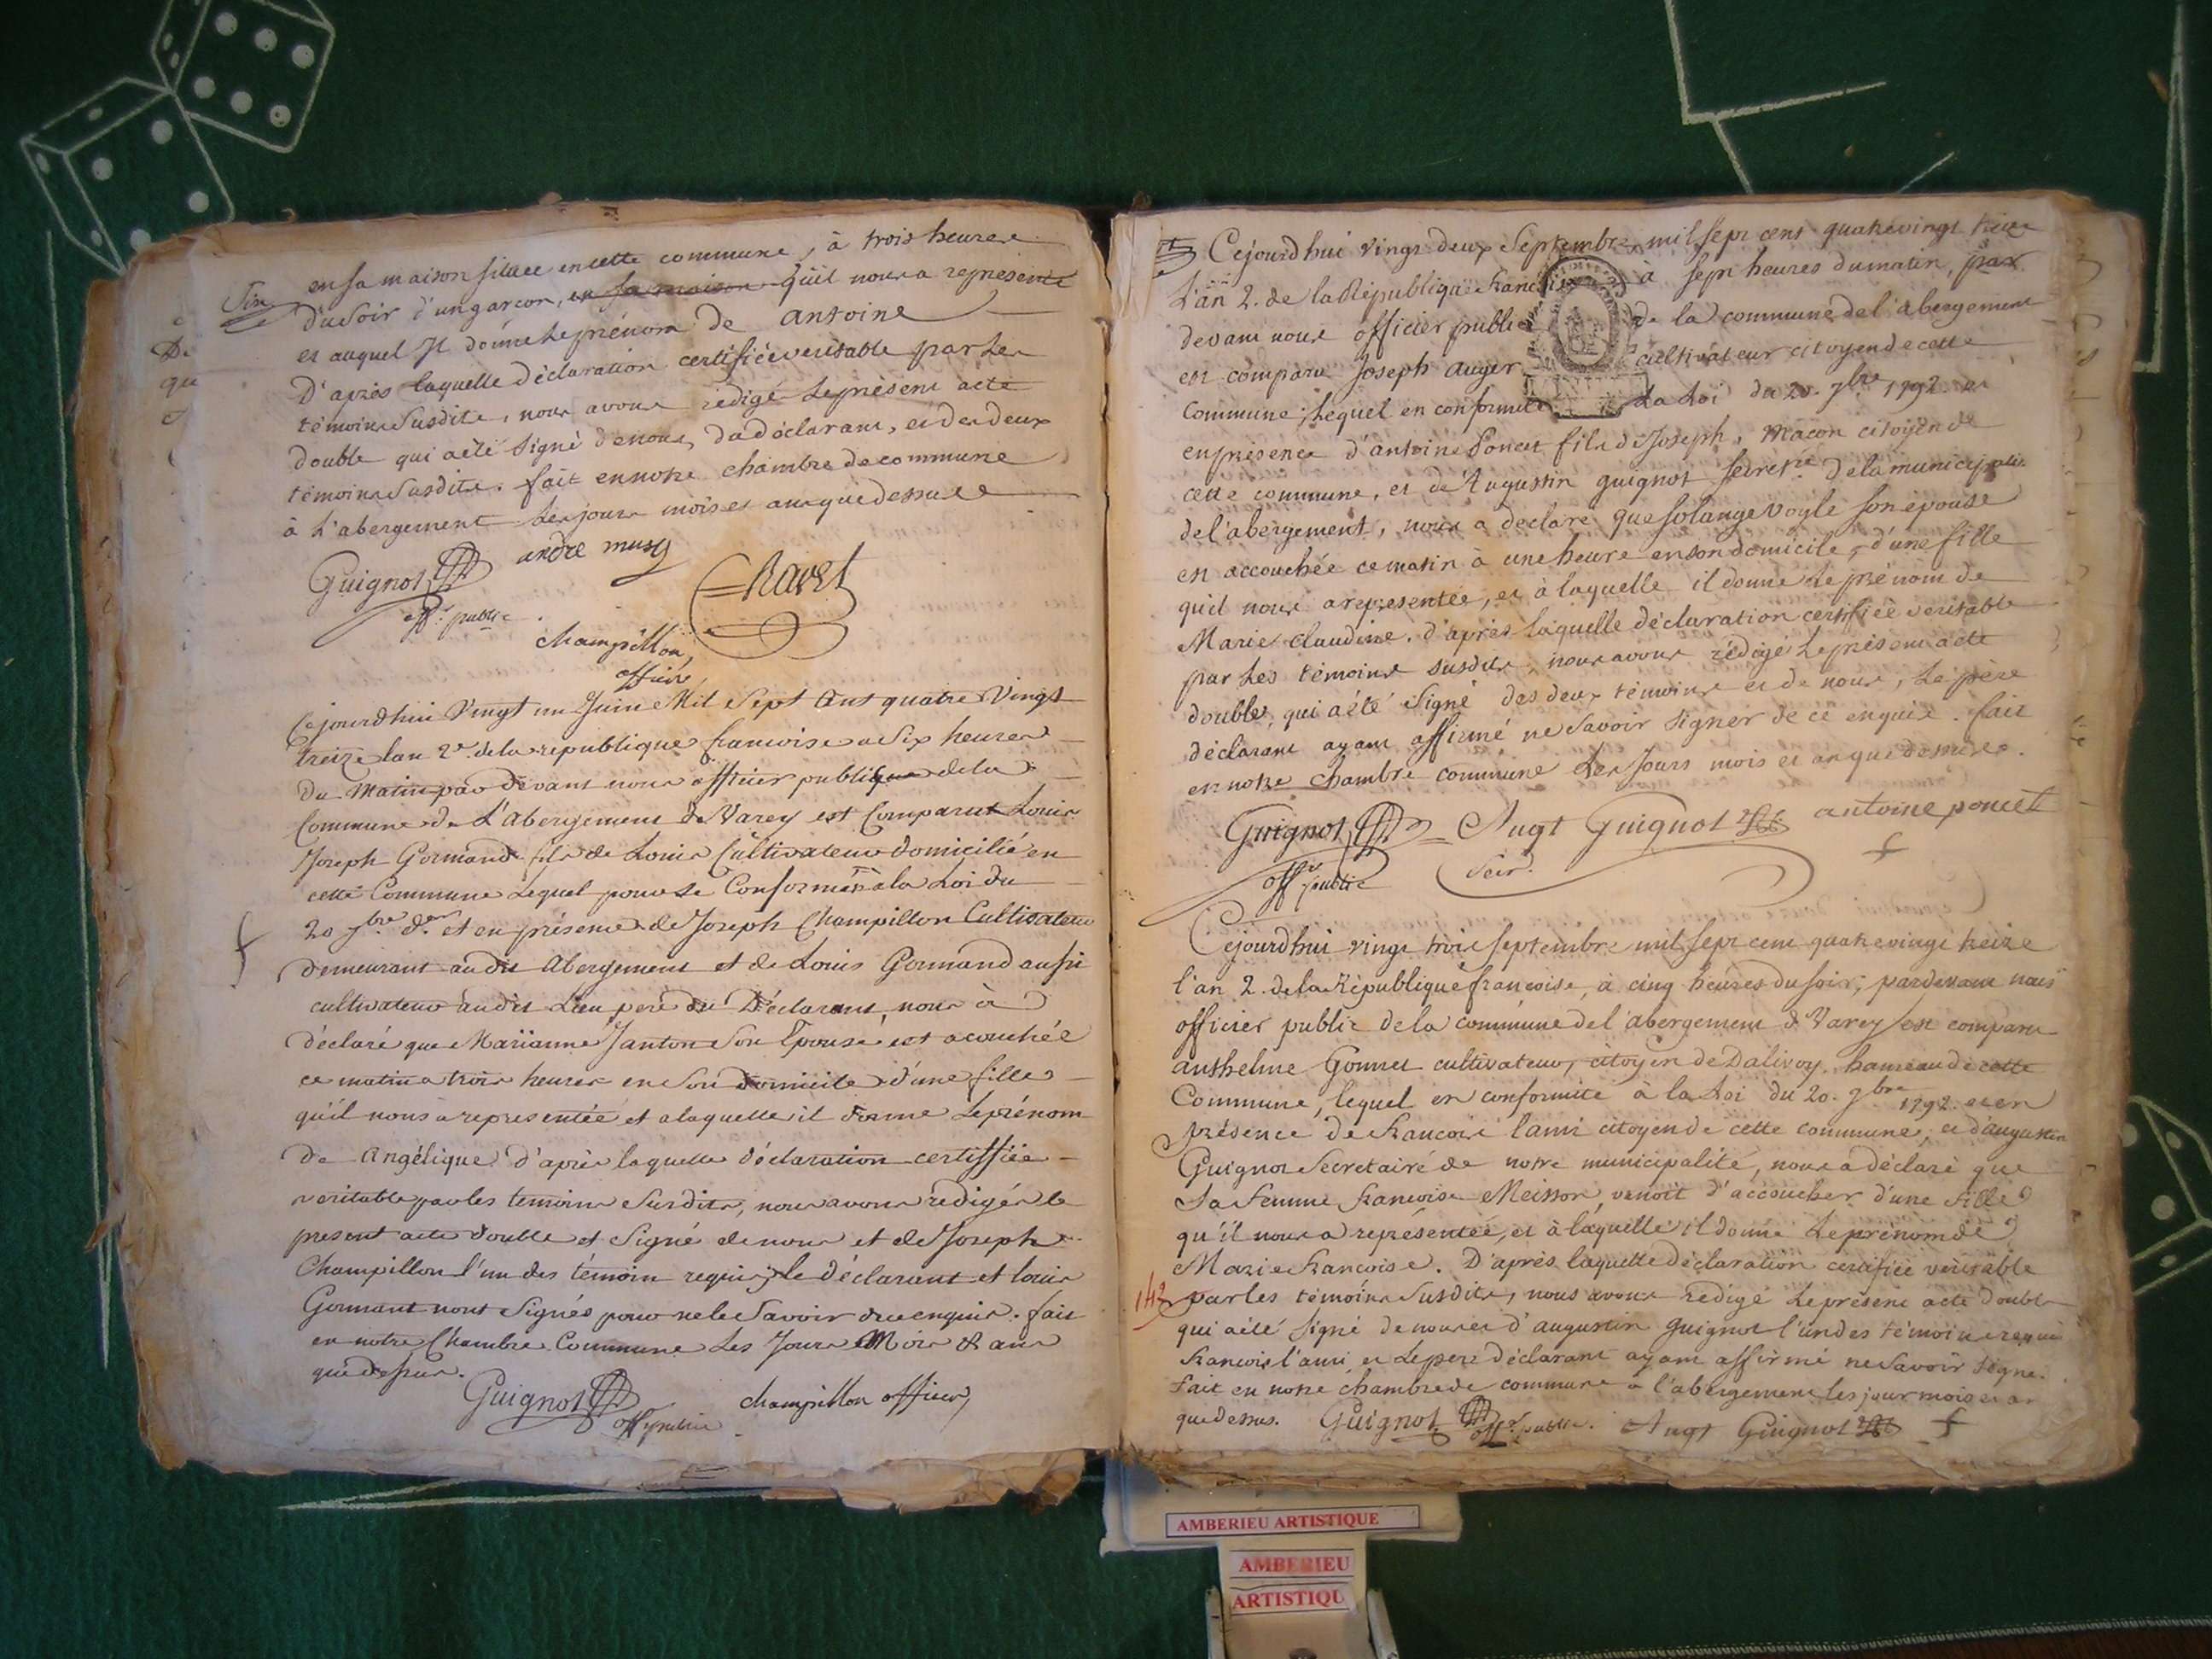 Six
en sa maison situee en cette commune, à trois heures
du soir d'un garçon, en sa maison qu'il nous a representé
et auquel Il donne le prénom de antoine
D'après laquelle déclaration certifiée veritable par les
témoins susdits, nous avons rédigé le présent acte
double qui a été signé de nous, du déclarant, et des deux
témoins susdits. fait en notre chambre de commune
à L'abergement les jours mois et an que dessus
Guignot andre musy
off.r public
Chavet
champillon
officié
Cejourdhui Vingt un Juin Mil Sept Cent quatre Vingt
treize lan 2.e de la republique francoise a Six heures
du Matin par devant nous officier publique de la
Commune de L'Abergement de Varey est Comparut Louis
Joseph Gormand fils de Louis Cultivateur domicilié en
cette Commune Lequel pour se Conformer a la Loi du
20 7bre d.er et en présence de Joseph Champillon Cultivateur
demeurant au dit Abergement et de Louis Gormand aussi
cultivateur audit Lieu pere du Déclarant, nous à
déclaré que Marianne Janton Son Epouse est acouchée
ce matin a trois heures en Son domicile d'une fille
qu'il nous a representée et a laquelle il donne Le prénom
de Angélique d'après laquelle déclaration certiffiée
veritable par les temoins Susdits, nous avons rédigér le
present acte double et Signé de nous et de Joseph
Champillon l'un des témoin requis, le déclarant et louis
Gormant nont Signés pour ne le Savoir de ce enquis. fait
en notre Chambre Commune Les Jours Mois & ans
que dessus.
Guignot champillon officier
off.r public
Cejourdhui vingt deux Septembre mil sept cent quatrevingt treize
L'an 2. de la République francoise à sept heures du matin, par
devant nous officier public de la commune de l'abergement
est comparu Joseph auger cultivateur citoyen de cette
commune, lequel en conformité la Loi du 20. 7bre 1792. et
en présence d'antoine Poncet fils de Joseph, macon citoyen de
cette commune, et de Augustin guignot secret.re de la municipalité
de l'abergement, nous a declaré que solange voyle son épouse
est accouchée ce matin à une heure en son domicile, d'une fille
qu'il nous a representée, et à laquelle il donne le prénom de
Marie claudine. d'après laquelle déclaration certifiée veritable
par Les témoins susdits, nous avons rédigé le présent acte
double, qui a été signé des deux témoins et de nous, Le père
déclarant ayant affirmé ne savoir signer de ce enquis. fait
en notre chambre commune les Jours mois et an que dessus.
Guignot Augt Guignot antoine poncet
off.r public Secr.
Cejourd'hui vingt trois septembre mil sept cent quatrevingt treize
l'an 2. de la République francoise, à cinq heures du soir, pardevant nous
officier public de la commune de l'abergement de Varey est comparu
anthelme Gonnet cultivateur, citoyen de Dalivoy, hameau de cette
Commune, lequel en conformité à la Loi du 20. 7bre 1792. et en
présence de francois lami citoyen de cette commune, et d'augustin
Guignot Secretaire de notre municipalité, nous a déclaré que
Sa femme francoise Meisson, venoit d'accoucher d'une fille
qu'il nous a représentée, et à laquelle il donne le prénom de
Marie francoise. D'après laquelle déclaration certifiée veritable
143
par les témoins Susdits, nous avons redigé le présent acte double
qui a été signé de nous et d'augustin guignot l'un des témoins requis
francois l'ami et le pere déclarant ayant affirmé ne Savoir signer.
fait en notre chambre de commune à l'abergement les jour mois et an
que dessus. Guignot off.r public. Augt Guignot
AMBERIEU ARTISTIQUE
AMBERIEU
ARTISTIQU